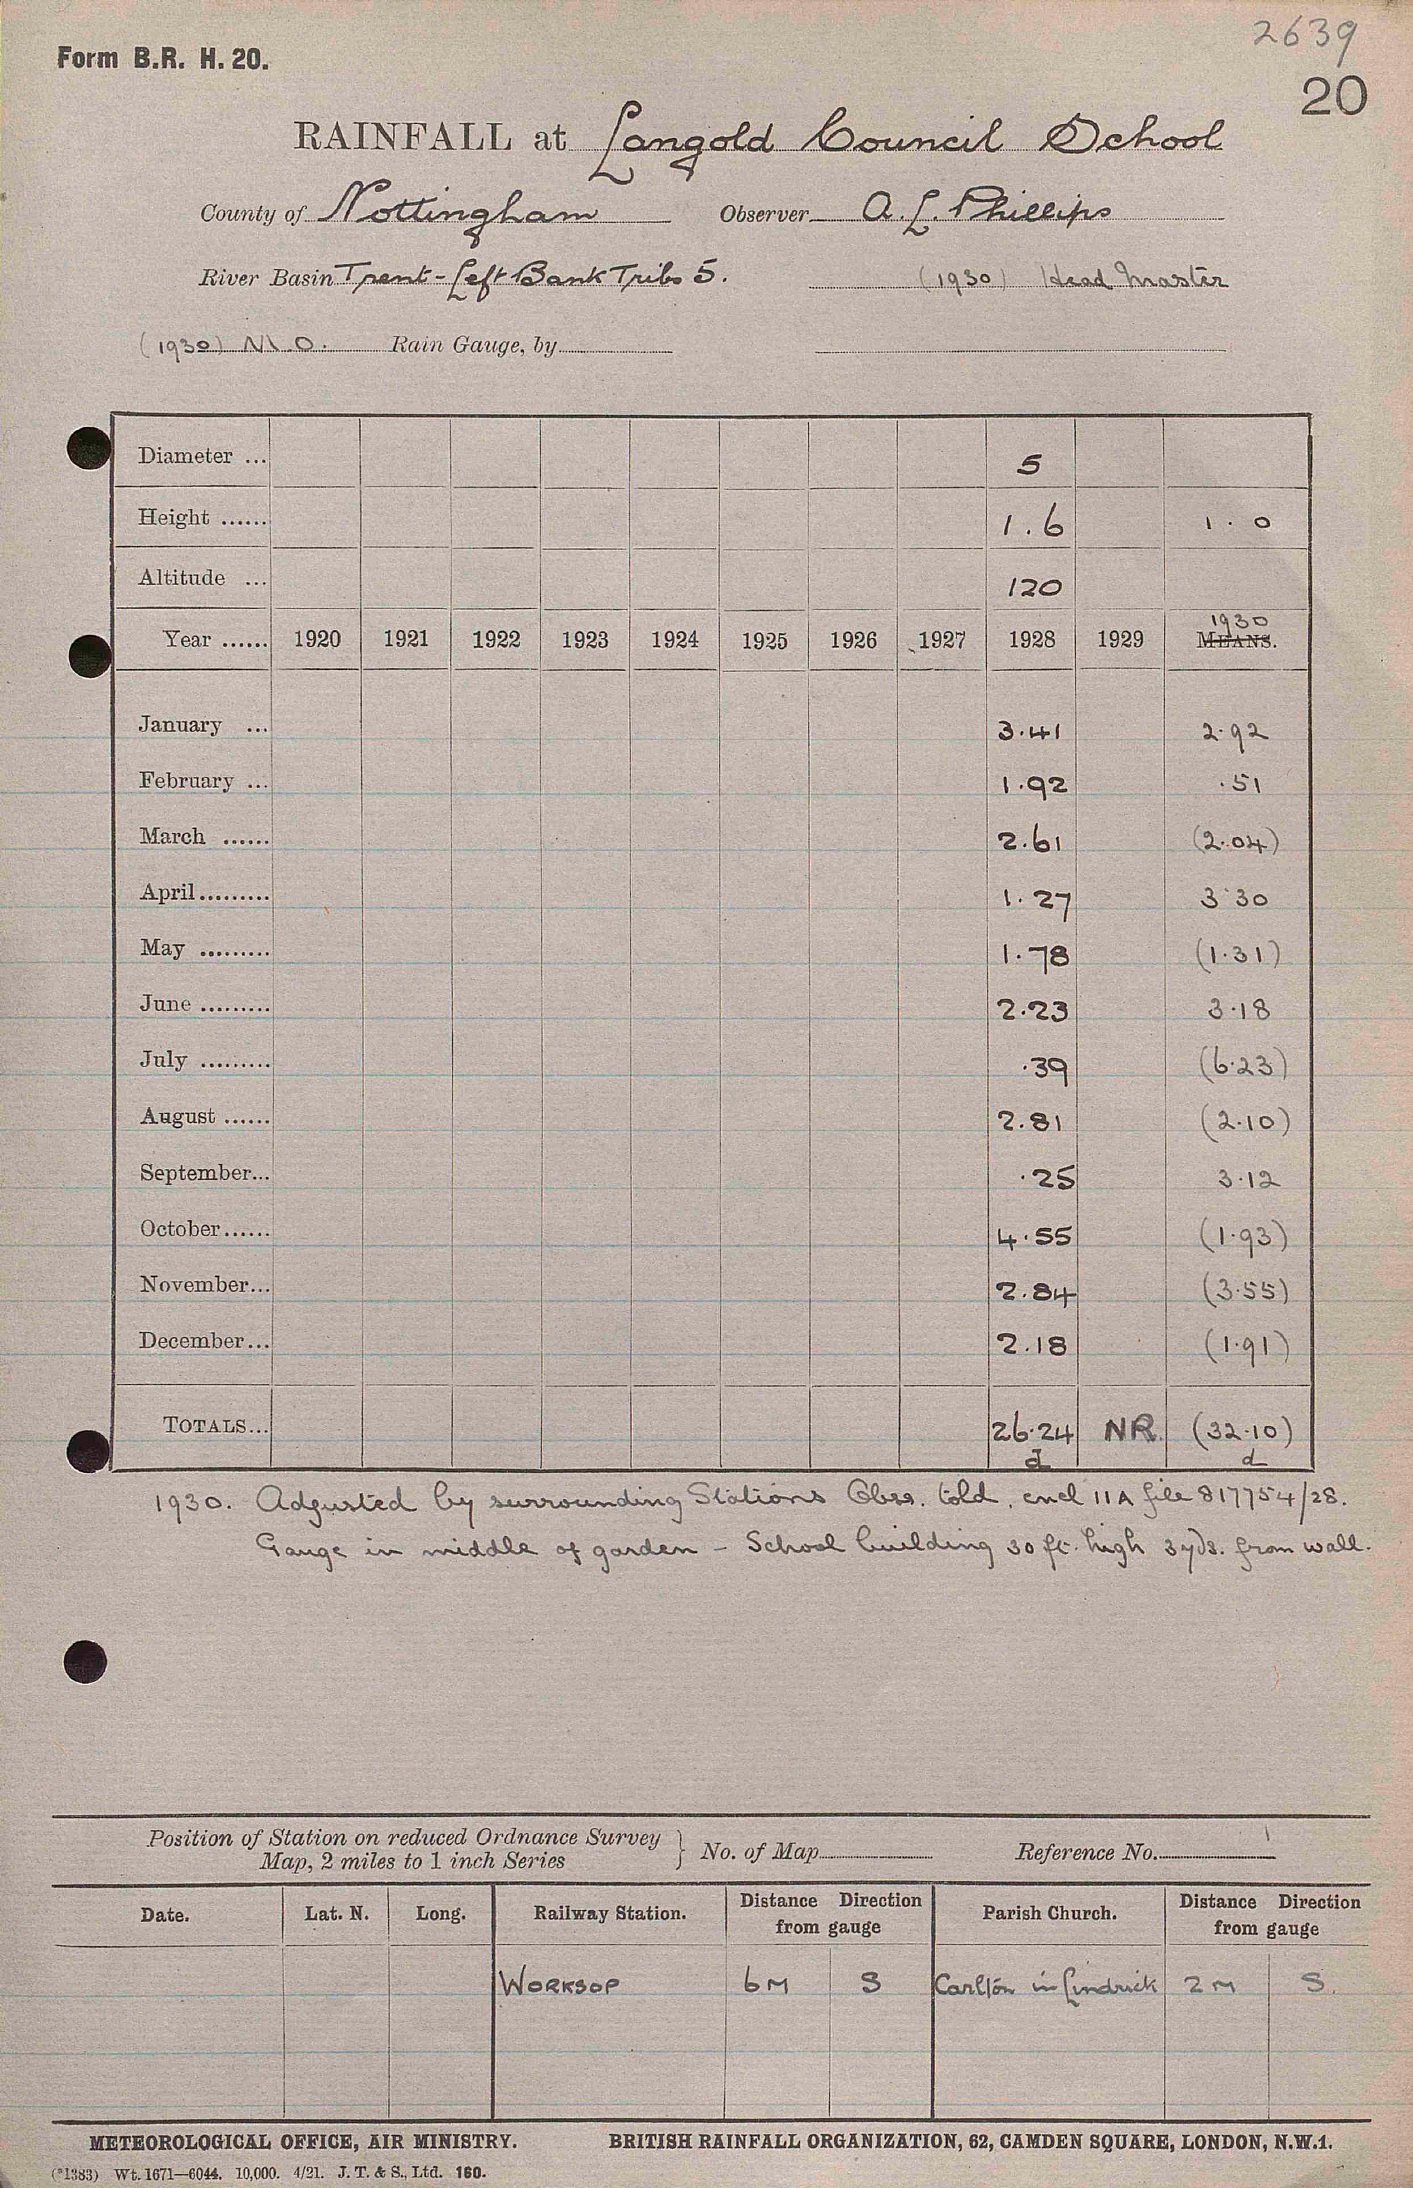 2639
Form B.R. H. 20.
20
RAINFALL at Langold Council School
County of Nottingham Observer A. L. Phillips
River Basin Trent - Left Bank Tribs 5. (1930) Head Master
(1930) M.O. Rain Gauge, by
Diameter ... 5
Height ...... 1.6 1.0
Altitude ... 120
1930
Year ...... 1920 1921 1922 1923 1924 1925 1926 1927 1928 1929 MEANS.
January ... 3.41 2.92
February ... 1.92 .51
March ...... 2.61 (2.04)
April......... 1.27 3.30
May ......... 1.78 (1.31)
June ......... 2.23 3.18
July ......... .39 (6.23)
August ...... 2.81 (2.10)
September... .25 3.12
October...... 4.55 (1.93)
November... 2.84 (3.55)
December... 2.18 (1.91)
TOTALS... 26.24 NR. (32.10)
d d
1930. Adjusted by surrounding Stations Obsr. told, encl 11A file 817754/28.
Gauge in middle of garden - School building 30 ft. high 3 yds. from wall.
Position of Station on reduced Ordnance Survey
Map, 2 miles to 1 inch Series } No. of Map Reference No.
Date. Lat. N. Long. Railway Station. Distance Direction from gauge Parish Church. Distance Direction from gauge
WORKSOP 6M S Carlton in Lindrick 2M S.
METEOROLOGICAL OFFICE, AIR MINISTRY. BRITISH RAINFALL ORGANIZATION, 62, CAMDEN SQUARE, LONDON, N.W.1.
(*1383) Wt. 1671—6044. 10,000. 4/21. J. T. & S., Ltd. 160.